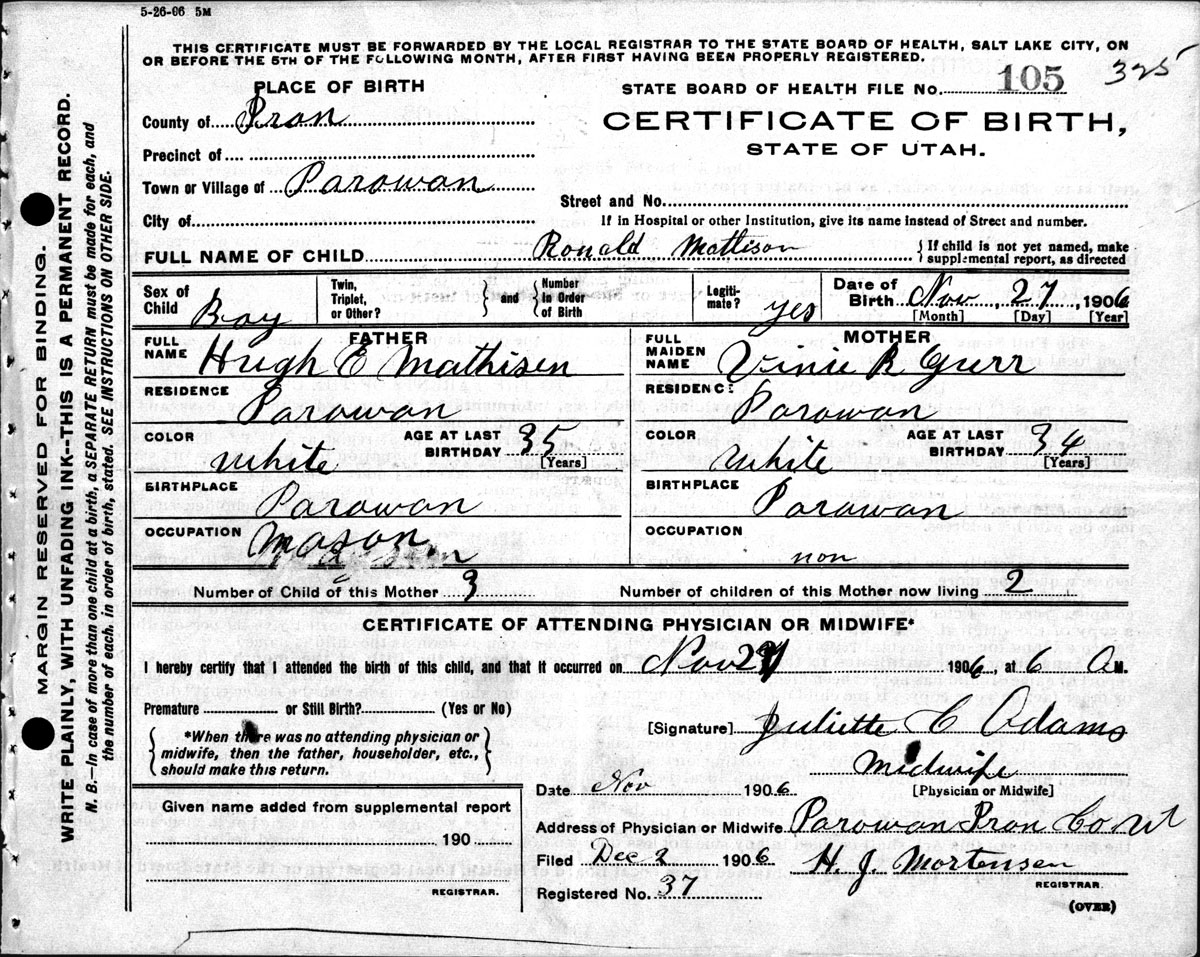 5-26-06 5M
THIS CERTIFICATE MUST BE FORWARDED BY THE LOCAL REGISTRAR TO THE STATE BOARD OF HEALTH, SALT LAKE CITY, ON
OR BEFORE THE 5TH OF THE FOLLOWING MONTH, AFTER FIRST HAVING BEEN PROPERLY REGISTERED.
325
PLACE OF BIRTH
STATE BOARD OF HEALTH FILE No. 105
County of Iron
CERTIFICATE OF BIRTH,
STATE OF UTAH.
Precinct of
Town or Village of Parowan
Street and No.
City of
If in Hospital or other Institution, give its name instead of Street and number.
FULL NAME OF CHILD Ronald Mattison
{ If child is not yet named, make
supplemental report, as directed
Sex of Child Boy
Twin, Triplet, or Other? } and { Number in Order of Birth
Legiti-mate? yes
Date of Birth Nov 27 1906
[Month] [Day] [Year]
FATHER
FULL NAME Hugh E Mathisen
RESIDENCE Parowan
COLOR White
AGE AT LAST BIRTHDAY 35 [Years]
BIRTHPLACE Parowan
OCCUPATION Mason
MOTHER
FULL MAIDEN NAME Vinie R Gurr
RESIDENCE Parowan
COLOR White
AGE AT LAST BIRTHDAY 34 [Years]
BIRTHPLACE Parowan
OCCUPATION non
Number of Child of this Mother 3
Number of children of this Mother now living 2
CERTIFICATE OF ATTENDING PHYSICIAN OR MIDWIFE*
I hereby certify that I attended the birth of this child, and that it occurred on Nov 27 1906, at 6 A M.
Premature or Still Birth? (Yes or No)
[Signature] Juliette C Adams
{ *When there was no attending physician or
midwife, then the father, householder, etc.,
should make this return. }
Midwife
[Physician or Midwife]
Date Nov 1906
Given name added from supplemental report
190
REGISTRAR.
Address of Physician or Midwife Parowan Iron Co Ut
Filed Dec 2 1906 H. J. Mortensen
REGISTRAR.
Registered No. 37
(OVER)
MARGIN RESERVED FOR BINDING.
WRITE PLAINLY, WITH UNFADING INK--THIS IS A PERMANENT RECORD.
N. B.—In case of more than one child at a birth, a SEPARATE RETURN must be made for each, and
the number of each, in order of birth, stated. SEE INSTRUCTIONS ON OTHER SIDE.